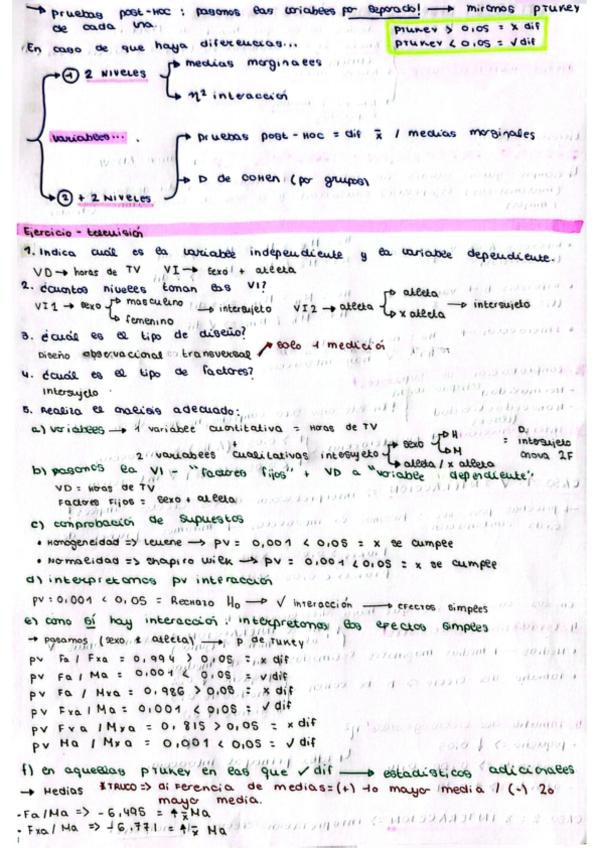 → pruebas post-Hoc : pasamos las variables por separado! → miramos ptukey
de cada una.
ptukey > 0,05 = x dif
ptukey < 0,05 = √ dif
En caso de que haya diferencias...
① 2 NIVELES
→ medias marginales
→ η² interacción
variables...
② + 2 NIVELES
→ pruebas post-Hoc = dif x̄ / medias marginales
→ D de COHEN (por grupos)
Ejercicio - televisión
1. Indica cuál es la variable independiente y la variable dependiente.
VD → horas de TV VI → sexo + atleta
2. ¿cuantos niveles toman las VI?
VI 1 → sexo → masculino → femenino → intersujeto VI 2 → atleta → atleta → x atleta → intersujeto
3. ¿cuál es el tipo de diseño?
Diseño observacional transversal → solo 1 medición
4. ¿cuál es el tipo de factores?
intersujeto
5. Realiza el analisis adecuado:
a) variables → 1 variable cuantitativa = Horas de TV
+
2 variables cualitativas intersujeto → sexo → H → M → atleta / x atleta = intersujeto anova 2F
b) pasamos la VI - "factores fijos" + VD a "variable dependiente".
VD = Horas de TV
Factores Fijos = sexo + atleta
c) comprobación de supuestos
• Homogeneidad => Levene → pv = 0,001 < 0,05 = x se cumple
• Normalidad => Shapiro Wilk → pv = 0,001 < 0,05 = x se cumple
d) interpretamos pv interacción
pv = 0,001 < 0,05 = Rechazo H₀ → √ interacción → efectos simples
e) como SÍ hay interacción, interpretamos los efectos simples
→ pasamos (sexo x atleta) → p de Tukey
pv Fa / Fxa = 0,994 > 0,05 = x dif
pv Fa / Ma = 0,001 < 0,05 = √ dif
pv Fa / Mxa = 0,986 > 0,05 = x dif
pv Fxa / Ma = 0,001 < 0,05 = √ dif
pv Fxa / Mxa = 0,815 > 0,05 = x dif
pv Ma / Mxa = 0,001 < 0,05 = √ dif
f) en aquellas ptukey en las que √ dif → estadísticos adicionales
→ Medias *TRUCO => diferencia de medias = (+) 1o mayor media / (-) 2o
mayor media.
- Fa/Ma => - 6,495 = ↑ x̄ Ma
- Fxa/Ma => - 6,771 = ↑ x̄ Ma